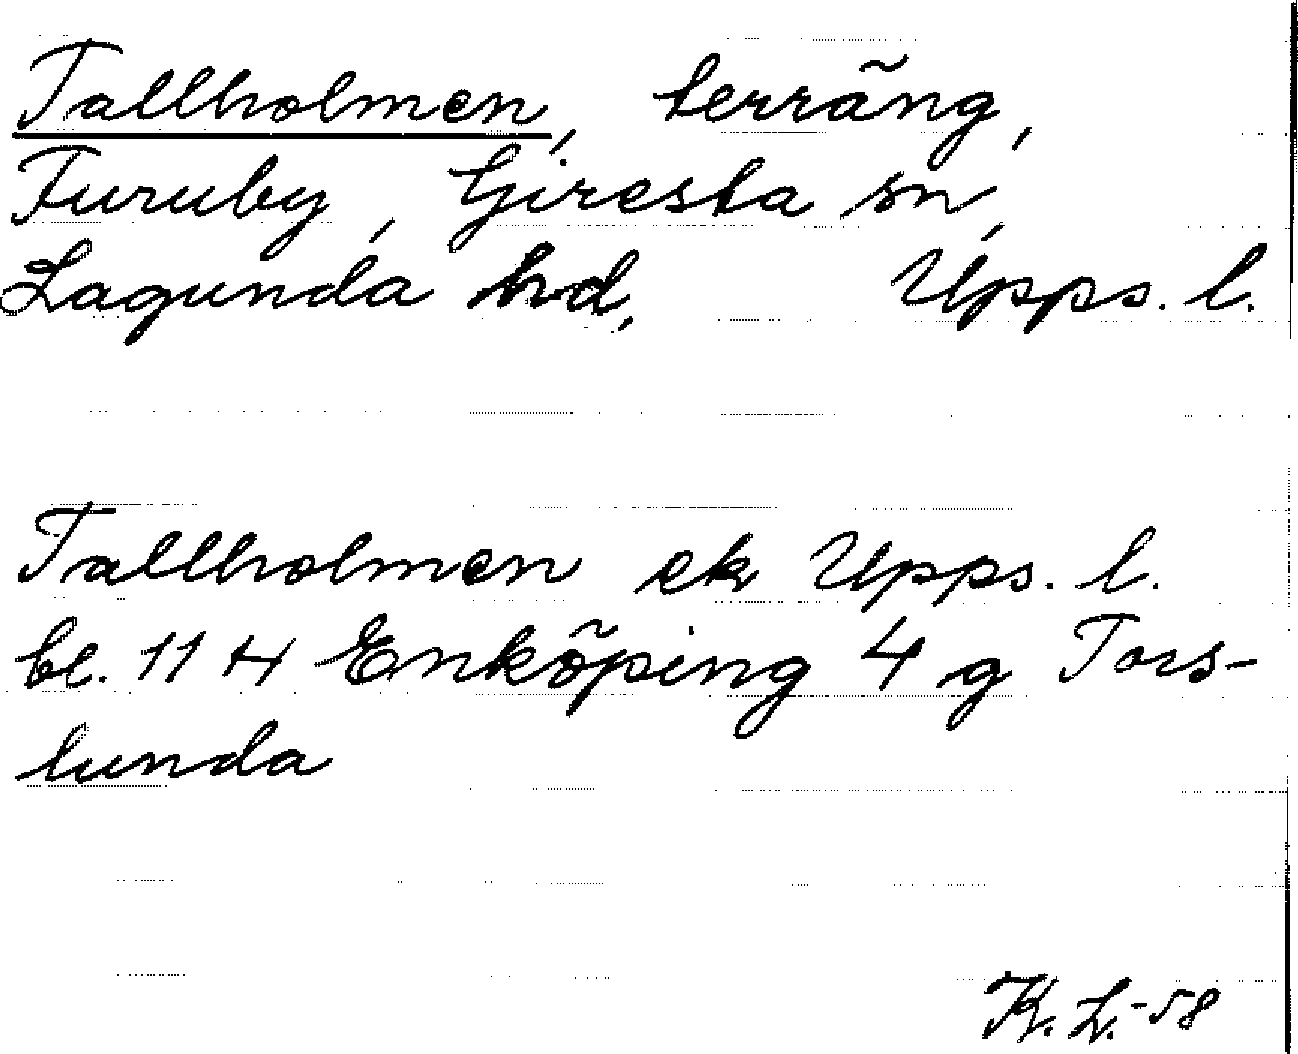 Tallholmen, terräng,
Furuby, Giresta sn,
Lagunda hd, Upps. l.
Tallholmen ek Upps. l.
bl. 11 H Enköping 4 g Tors-
lunda
K. L. -58